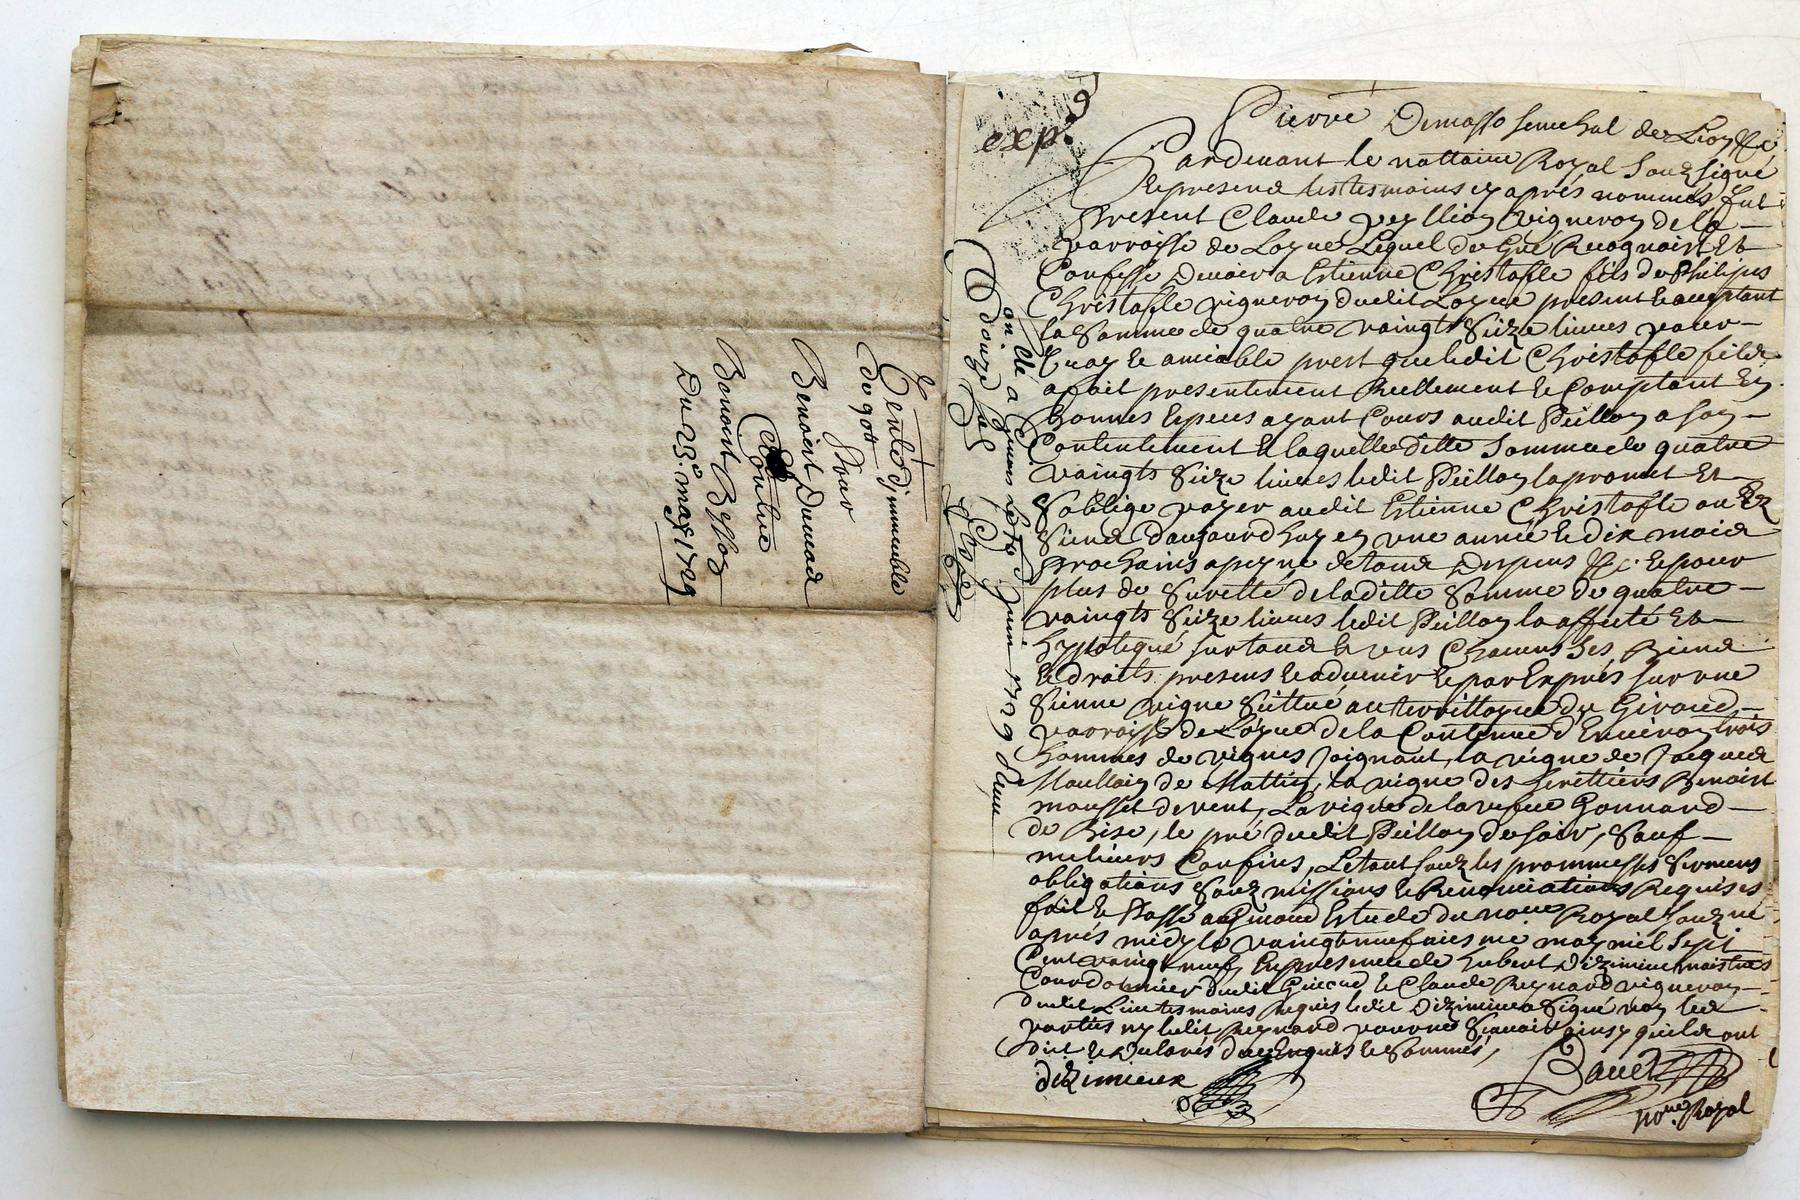 Vente d'immeuble
de 90tt
Pour
Benoist Dumad
Contre
Benoist Besson
Du 23e. may 1729
exp.
9
Pierre Demasso senechal de Lion &c
Pardevant le nottaire Royal Souzsigné
Et presend les tesmoins cy après nommés fut
Present Claude Peillion vigneron de la
parroisse de Loyne Lequel de Gré Recognoist Et
Confesse Devoir a Estienne Christofle fils de Philipes
Christofle vigneron dudit Loyne present & acceptant
la Somme de quatre vaingts Seize livres pour
vray & amiable prest que ledit Christofle fils
a fait presentement Reellement & Comptant En
bonnes Especes ayant Cours audit Peillon a son
Contentement & laquelle ditte Somme de quatre
vaingts Seize livres ledit Peillon la promet Et
S'oblige payer audit Estienne Christofle ou Ez
Siens d'aujourdhuy en une année & dix mois
Prochains a peyne de tous Despens &c. & pour
plus de Suretté de laditte Somme de quatre
vaingts Seize livres ledit Peillon la affecté Et
hypotequé sur tous & uns Chacuns Ses Biens
& droits presens & advenir & par Exprés sur une
Sienne vigne Scittué au territtoyre du Giroud
parroisse de Loyne de la Contenue d'Environ trois
hommes de vignes joignant, la vigne de Jacques
de Mattin, la vigne des herittiers Benoist
mousset de vent, La vigne de la vefve Gonnard
de Bise, le pré dudit Peillon de soir, Sauf
milieurs Confins, Et tout souz les prommesses Sermens
obligations Souzmissions & Renonciations Requises
fait & Passé au Estude du nore Royal Souzné
après midy le vaingtneufviesme may mil Sept
Cent vaingt neuf, En presence de hubert Dizimieux maistre
Courdonnier dudit & Claude Reynard vigneron
dudit Lieu tesmoins Requis ledit Dizimieux a Signé non les
parties ny ledit Reynard pour ne Scavoir ainsy qu'ils ont
dit & Declarés de ce Enquis & Sommés,
dizimieux
nore. Royal
onllé a le 10 juin 1729 Reçu
douze sols